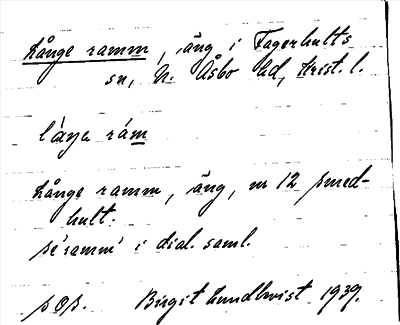 Långe ramm, äng i Fagerhults
sn, N. Åsbo hd, Krist. l.
låŋa ràm
Långe ramm, äng, nr 12 Smed-
hult.
se 'ramm' i dial. saml.
sås. Birgit Lundkvist 1939.